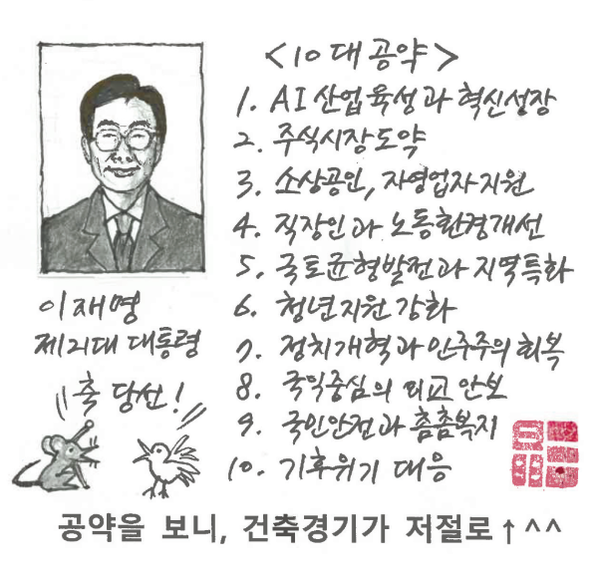 <10대 공약>
1. AI 산업 육성과 혁신성장
2. 주식시장 도약
3. 소상공인, 자영업자 지원
4. 직장인과 노동환경개선
5. 국토균형발전과 지역특화
6. 청년지원 강화
7. 정치개혁과 민주주의 회복
8. 국익중심의 외교 안보
9. 국민안전과 촘촘복지
10. 기후위기 대응
이재명
제21대 대통령
축 당선!
공약을 보니, 건축경기가 저절로↑^^